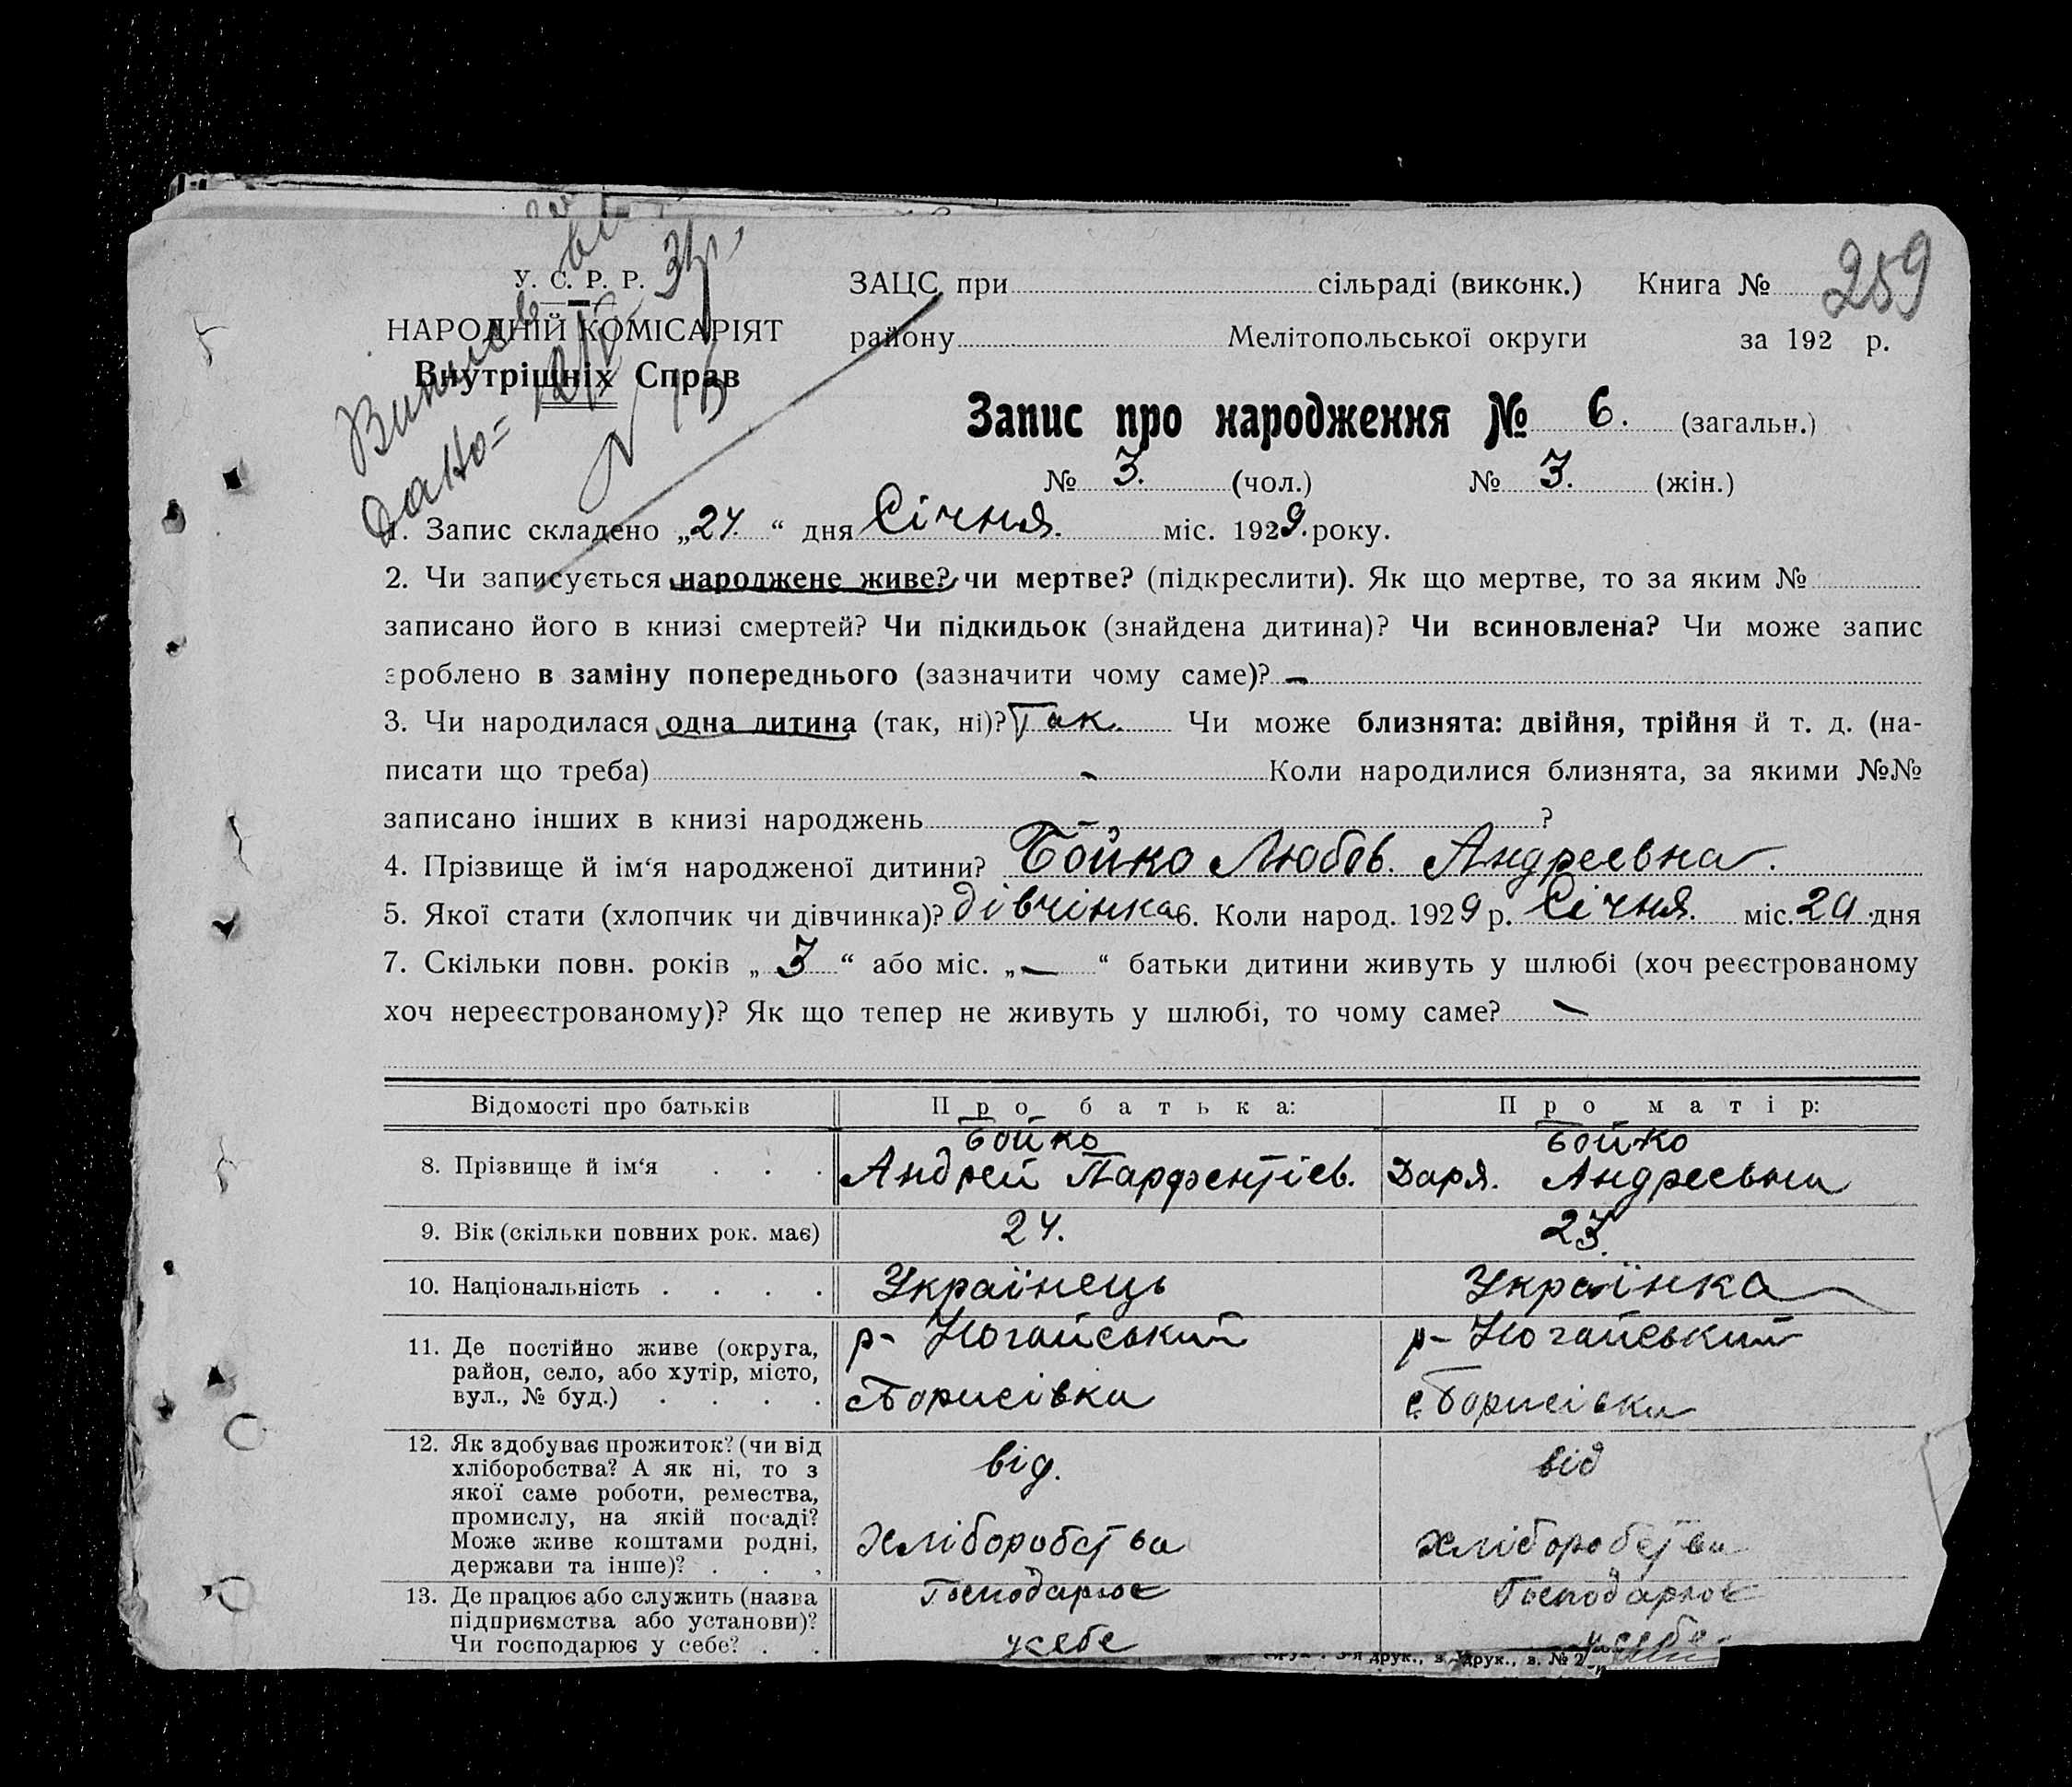 У. С. Р. Р.
НАРОДНІЙ КОМІСАРІЯТ
Внутрішніх Справ
ЗАЦС при сільраді (виконк.) Книга № 259
району Мелітопольської округи за 192 р.
Запис про народження № 6. (загальн.)
№ 3. (чол.) № 3. (жін.)
1. Запис складено „24.“ дня Січня. міс. 1929. року.
2. Чи записується народжене живе? чи мертве? (підкреслити). Як що мертве, то за яким №
записано його в книзі смертей? Чи підкидьок (знайдена дитина)? Чи всиновлена? Чи може запис
зроблено в заміну попереднього (зазначити чому саме)? —
3. Чи народилася одна дитина (так, ні)? Так. Чи може близнята: двійня, трійня й т. д. (на-
писати що треба) - Коли народилися близнята, за якими №№
записано інших в книзі народжень - ?
4. Прізвище й ім‘я народженої дитини? Бойко Любов. Андреевна.
5. Якої стати (хлопчик чи дівчинка)? дівчінка 6. Коли народ. 1929 р. Січня. міс. 20 дня
7. Скільки повн. років „3“ або міс. „—“ батьки дитини живуть у шлюбі (хоч реєстрованому
хоч нереєстрованому)? Як що тепер не живуть у шлюбі, то чому саме? —
Відомості про батьків Про батька: Про матір:
8. Прізвище й ім‘я . . . Бойко Андрей Парфентіев. Бойко Даря. Андреевна
9. Вік (скільки повних рок. має) 24. 23.
10. Національність . . . . Українець Українка
11. Де постійно живе (округа, р- Ногайський р- Ногайський
район, село, або хутір, місто,
вул., № буд.) . . . . с Борисівка с. Борисівка
12. Як здобуває прожиток? (чи від від. від
хліборобства? А як ні, то з
якої саме роботи, ремества,
промислу, на якій посаді?
Може живе коштами родні, хліборобства хліборобства
держави та інше)? . . .
13. Де працює або служить (назва Господарює Господарює
підприємства або установи)?
Чи господарює у себе? . . у себе у себе
друк., в. № 2